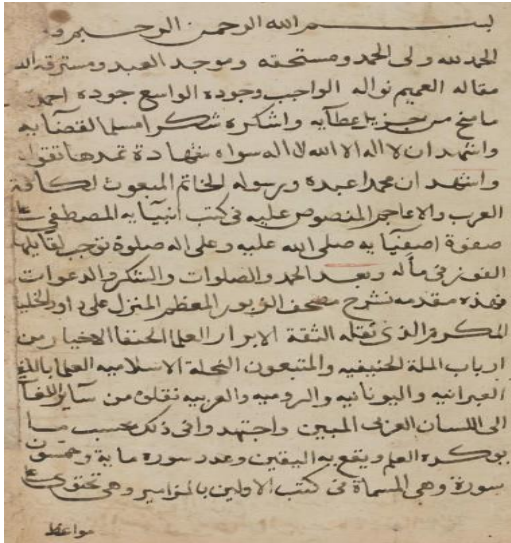 بسم الله الرحمن الرحيم وبه
الحمد لله ولي الحمد ومستحقه وموجد العبد ومسترقه الله
مقاله العميم نواله الواجب وجوده الواسع جوده احمده
ما منح من جزيل عطآيه واشكره شكرا مسلما لقضآيه
واشهد ان لا اله الا الله لا اله سواه شهادة تمدها تقواه
واشهد ان محمدا عبده ورسوله الخاتم المبعوث لكافة
العرب والاعاجم المنصوص عليه في كتب انبيآيه المصطفى
صفوة اصفيآيه صلى الله عليه وعلى اله صلوة توجب لقايلها
الفوز في مآله وبعد الحمد والصلوات والشكر والدعوات
فهذه مقدمه تشرح مصحف الزبور المعظم المنزل على داود الخليفة
المكرم الذي نقله الثقة الابرار العلما الحنفا الاخيار من
ارباب الملة الحنيفيه والمتبعون النحلة الاسلاميه العلما باللغة
العبرانيه واليونانيه والروميه والعربيه نقلوه من ساير اللغات
الى اللسان العربي المبين واجتهدوا في ذلك بحسب ما
يوكده العلم ويقع به اليقين وعدد سوره ماية وخمسون
سورة وهي المسماة في كتب الاولين بالمزامير وهي تحتوي على
مواعظ